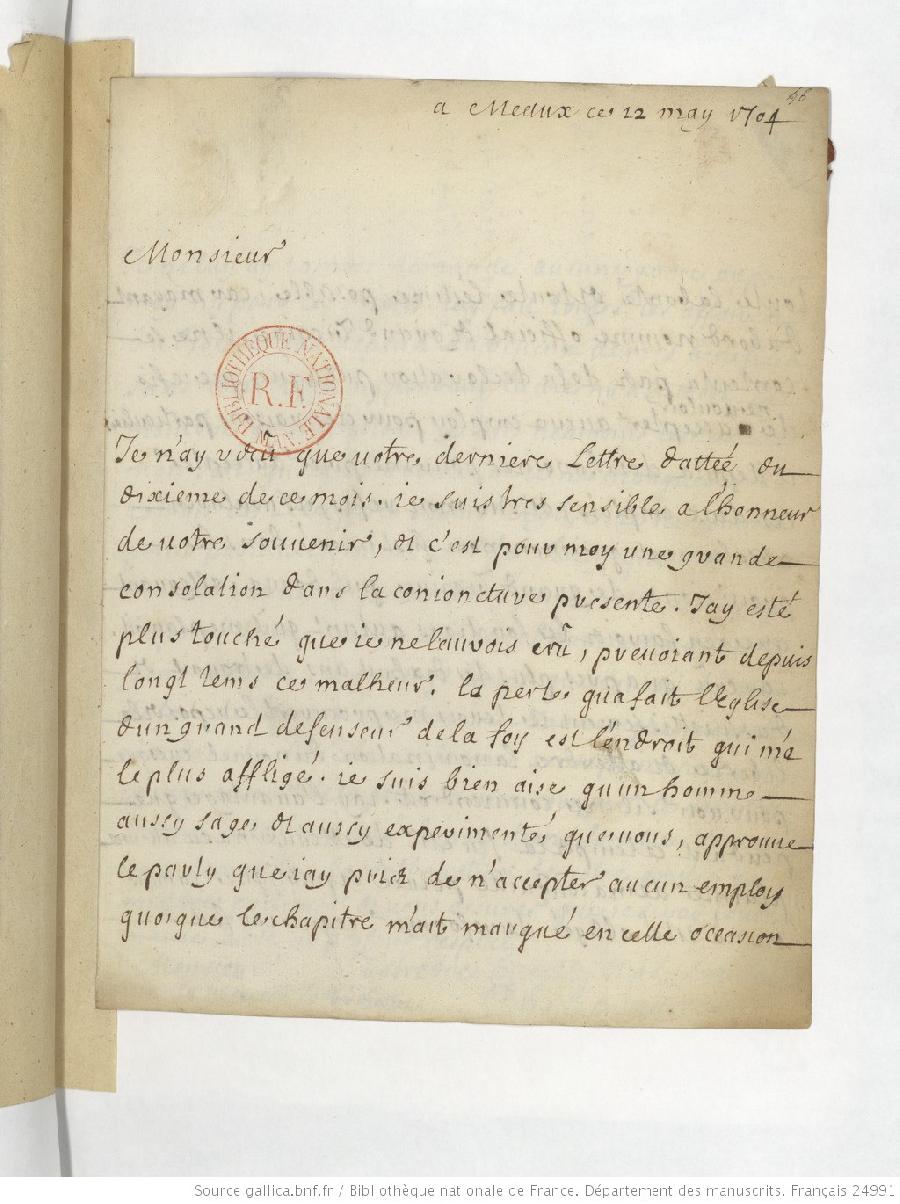 96
a Meaux ce 12 may 1704
Monsieur
BIBLIOTHEQUE NATIONALE MSS
R.F.
Je n'ay recu que votre derniere Lettre dattéé du
dixieme de ce mois. ie suis tres sensible a l'honneur
de votre souvenir, et c'est pour moy une grande
consolation dans la conioncture presente. J'ay esté
plus touché que ie ne lauvois crû, prevoiant depuis
longt tems ce malheur. la perte qu'a fait l'Eglise
d'un grand defenseur de la foy est l'endroit qui m'a
le plus affligé. ie suis bien aise qu'un homme
aussy sage et aussy experimenté que vous, approuve
le party que iay pris de n'accepter aucun employ
quoique le chapitre m'ait marqué en cette occasion
Source gallica.bnf.fr / Bibliothèque nationale de France. Département des manuscrits. Français 24991